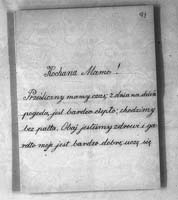 91
Kochana Mamo!
Prześliczny mamy czas; z dnia na dzień
pogoda, jest bardzo ciepło; chodzimy
bez palta. Obaj jesteśmy zdrowi i ga-
moje jest bardzo dobre, uczę się